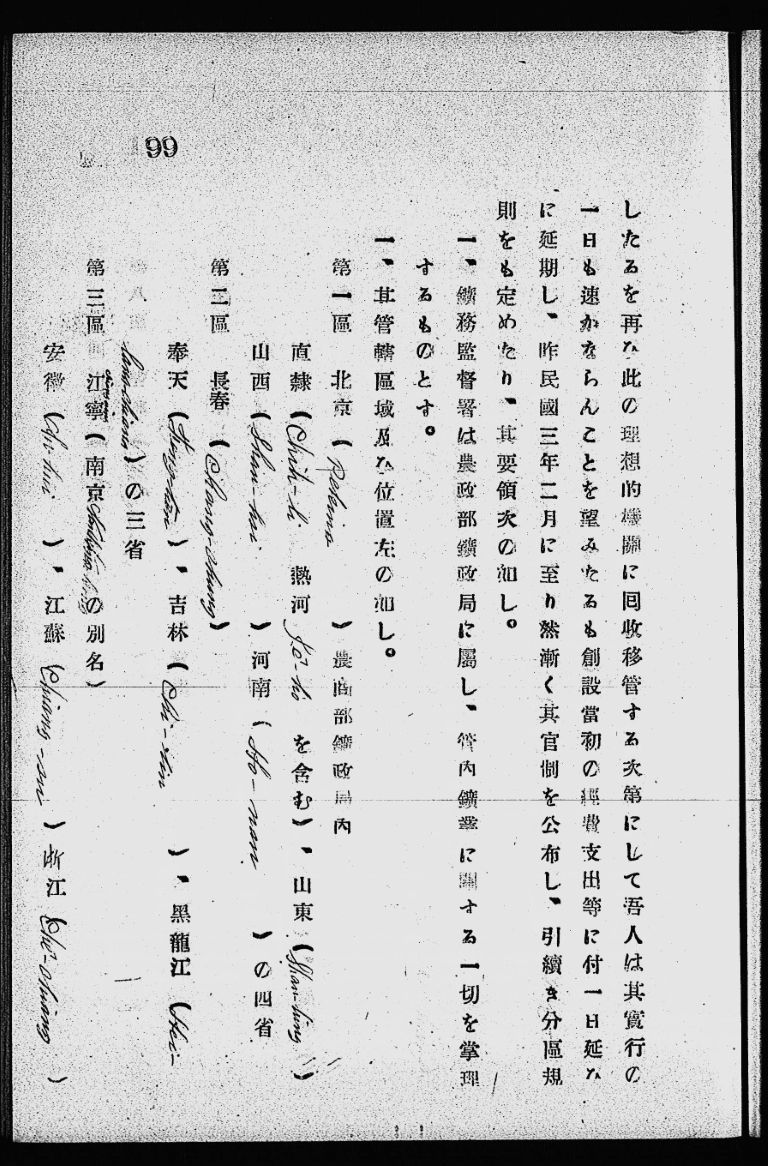 99
したるを再び此の理想的機關に囘收移管する次第にして吾人は其實行の
一日も速かならんことを望みたるも創設當初の經費支出等に付一日延び
に延期し、昨民國三年二月に至り然漸く其官制を公布し、引續き分區規
則をも定めたり、其要領次の如し。
一、鑛務監督署は農政部鑛政局に屬し、管內鑛業に關する一切を掌理
するものとす。
一、其管轄區域及び位置左の如し。
第一區 北京(Peking)農商部鑛政局內
直隸(Chih-li 熱河 Je-ho を含む)、山東(Shan-tung)
山西(Shan-hsi)河南(Ho-nan)の四省
第二區 長春(Chang-chung)
奉天(Feng-tien)、吉林(Chi-lin)、黑龍江(Hei-
lung-chiang)の三省
第三區 江寧(南京 の別名)
安徽(An-hui)、江蘇(Chiang-su)浙江(Che-chiang)